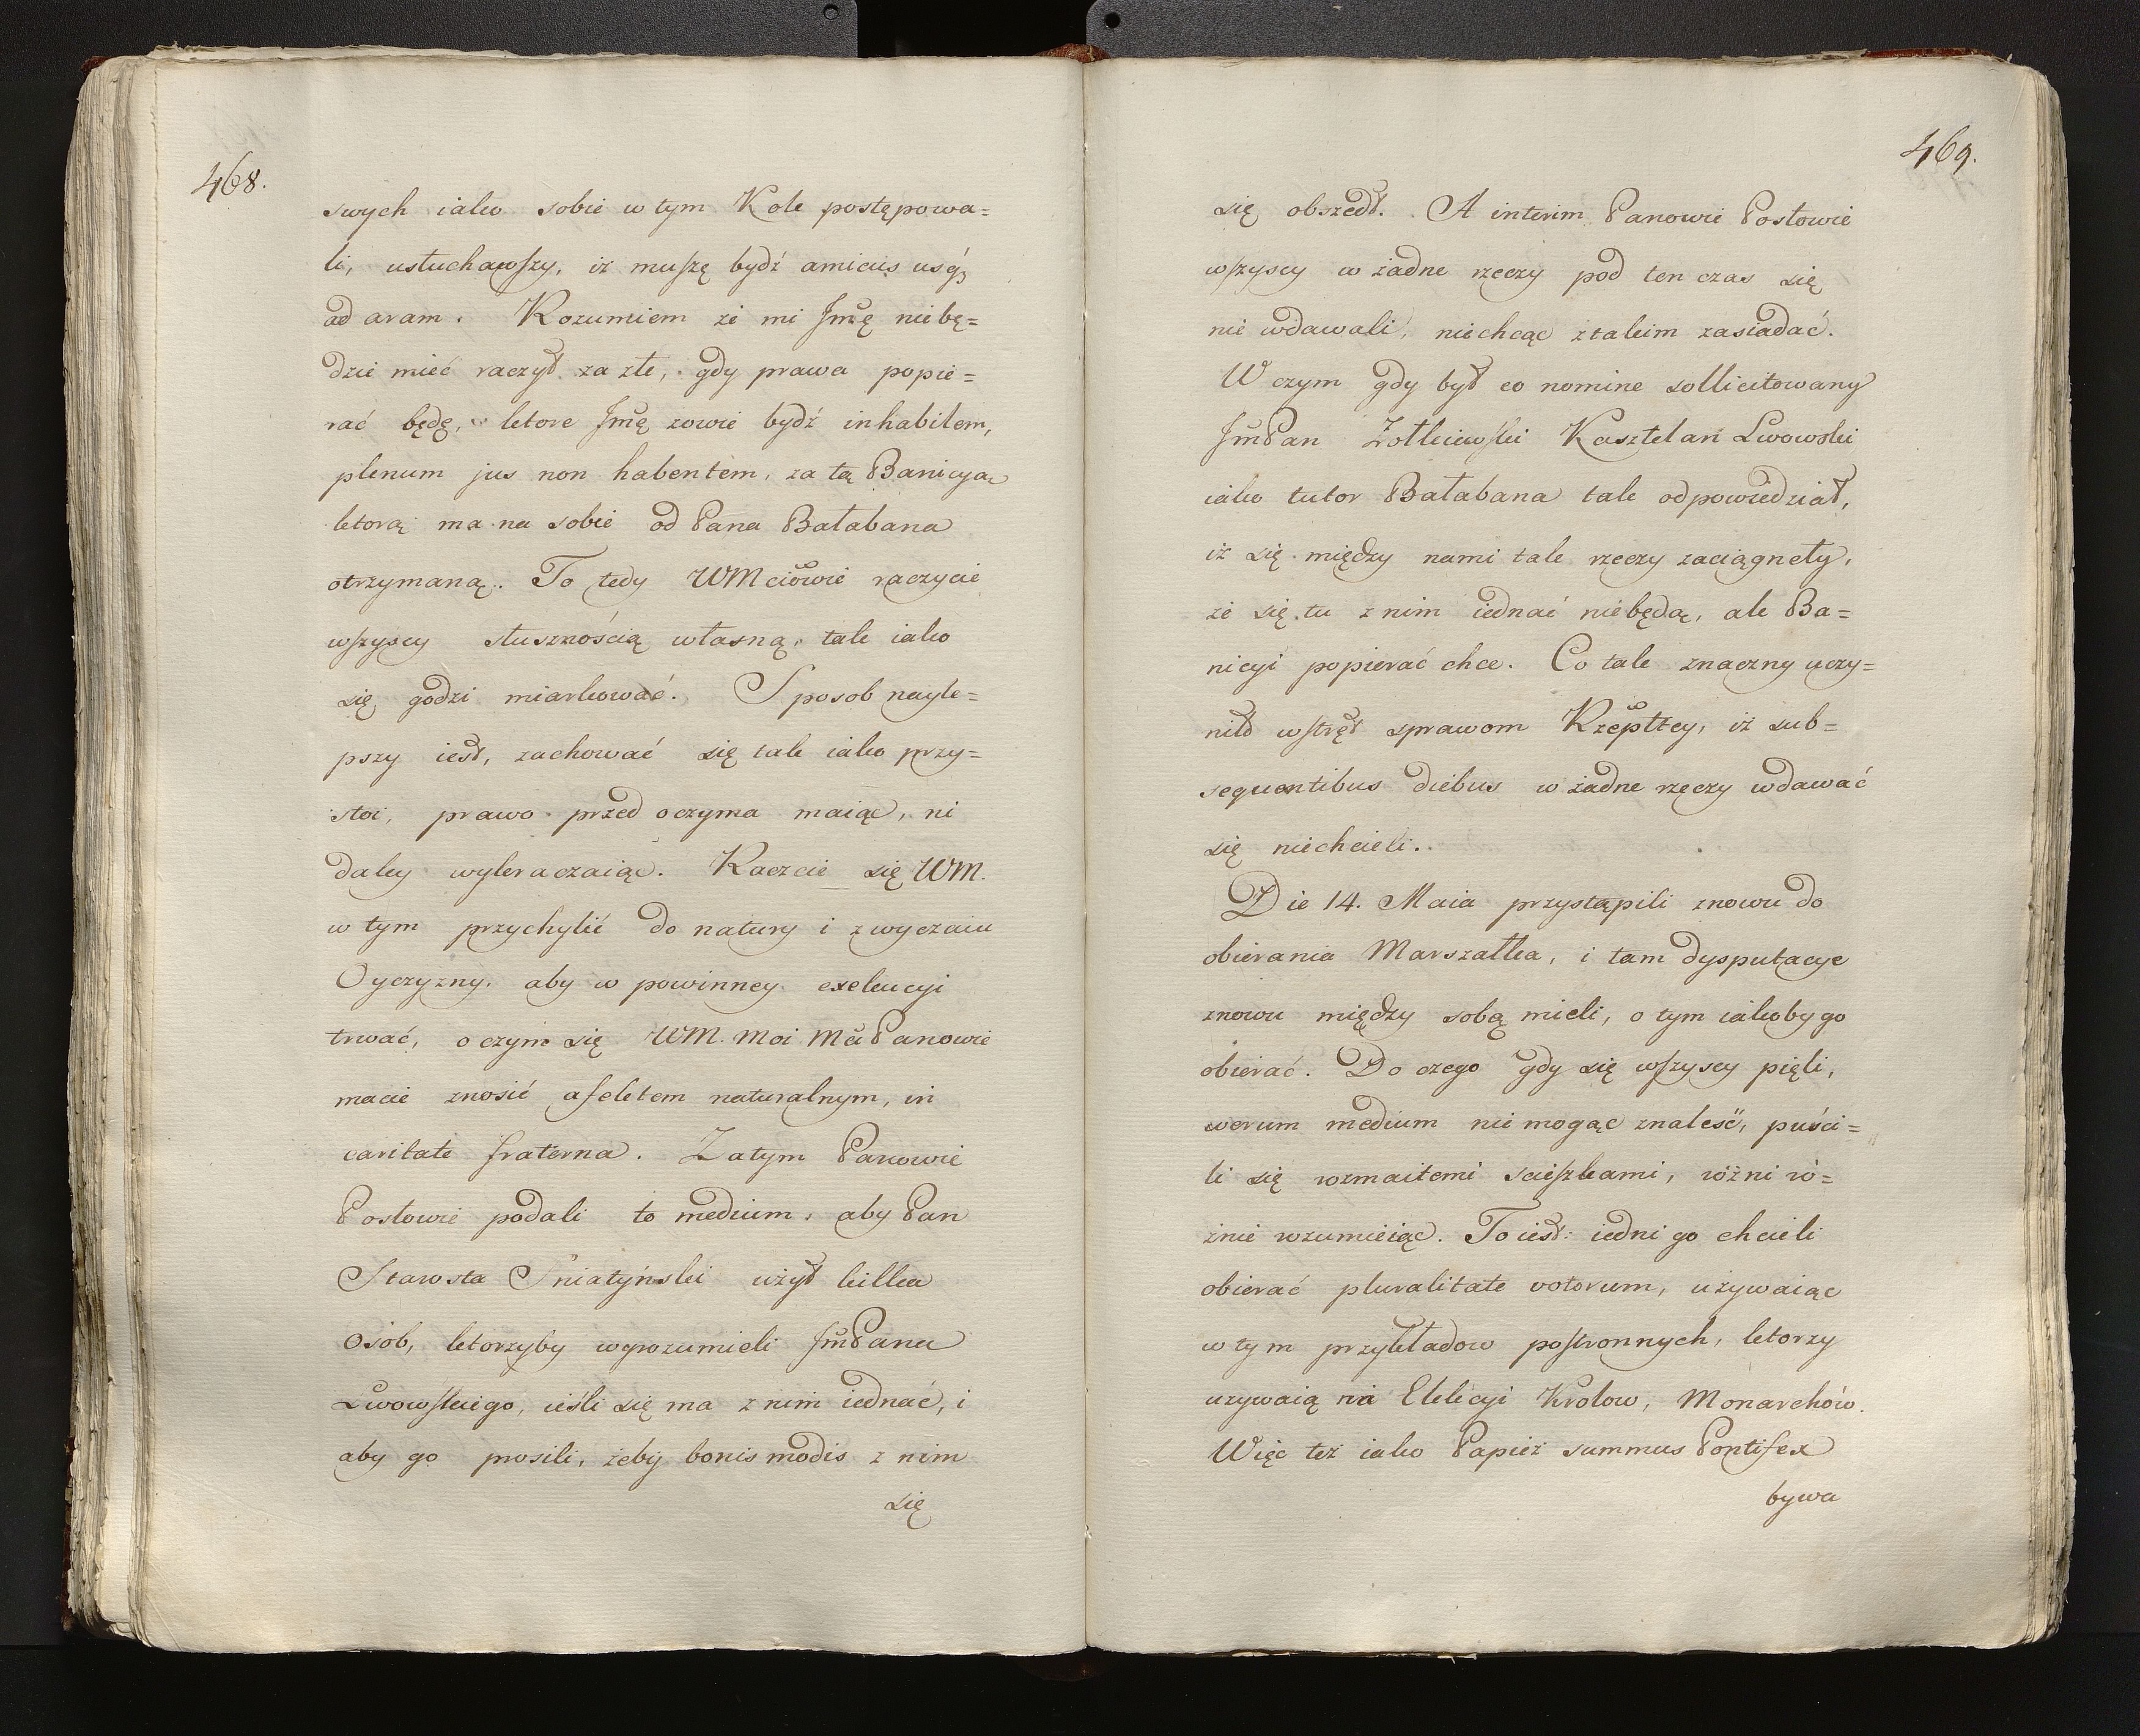 468.
swych iako sobie w tym Kole postępowa=
li, usłuchawszy, iż muszę bydź amicus usq3
ad aram. Rozumiem że mi Jmę niebę=
dzie mieć raczył za złe, gdy prawa popie=
rać będę, ktore Jmę zowie bydź inhabilem,
plenum jus non habentem, za tą Banicyą
ktorą ma na sobie od Pana Bałabana
otrzymaną. To tedy WMciowie raczycie
wszyscy słusznością własną, tak iako
się godzi miarkować. Sposob nayle=
pszy iest, zachować się tak iako przy=
stoi, prawo przed oczyma maiąc, ni
daley wykraczaiąc. Raczcie się WM.
w tym przychylić do natury i zwyczaiu
Oyczyzny, aby w powinney exekucyi
trwać, o czym się WM. Moi Mći Panowie
macie znosić afektem naturalnym, in
caritate fraterna. Zatym Panowie
Posłowie podali to medium, aby Pan
Starosta Sniatyński użył kilka
osób, ktorzyby wyrozumieli JmPana
Lwowskiego, ieśli się ma z nim iednać, i
aby go prosili, żeby bonis modis z nim
się
469.
się obszedł. A interim Panowie Posłowie
wszyscy w żadne rzeczy pod ten czas się
nie wdawali, niechcąc z takim zasiadać.
W czym gdy był eo nomine sollicitowany
JmPan Zołkiewski Kasztelan Lwowski
iako tutor Bałabana tak odpowiedział,
iż się między nami tak rzeczy zaciągneły,
że się tu z nim iednać niebędą, ale Ba=
nicyi popierać chce. Co tak znaczny uczy=
nił wstręt sprawom Rzepltey, iż sub=
sequentibus diebus w żadne rzeczy wdawać
się niechcieli.
Die 14. Maia przystąpili znowu do
obierania Marszałka, i tam dysputacye
znowu między sobą mieli, o tym iakoby go
obierać. Do czego gdy się wszyscy pięli,
werum medium nie mogąc znaleść, puści=
li się rozmaitemi scieszkami, różni ró=
żnie rozumieiąc. To iest: iedni go chcieli
obierać pluralitate votorum, używaiąc
w tym przykładow postronnych, ktorzy
używaią na Elekcyi Krolow, Monarchów.
Więc też iako Papież summus Pontifex
bywa